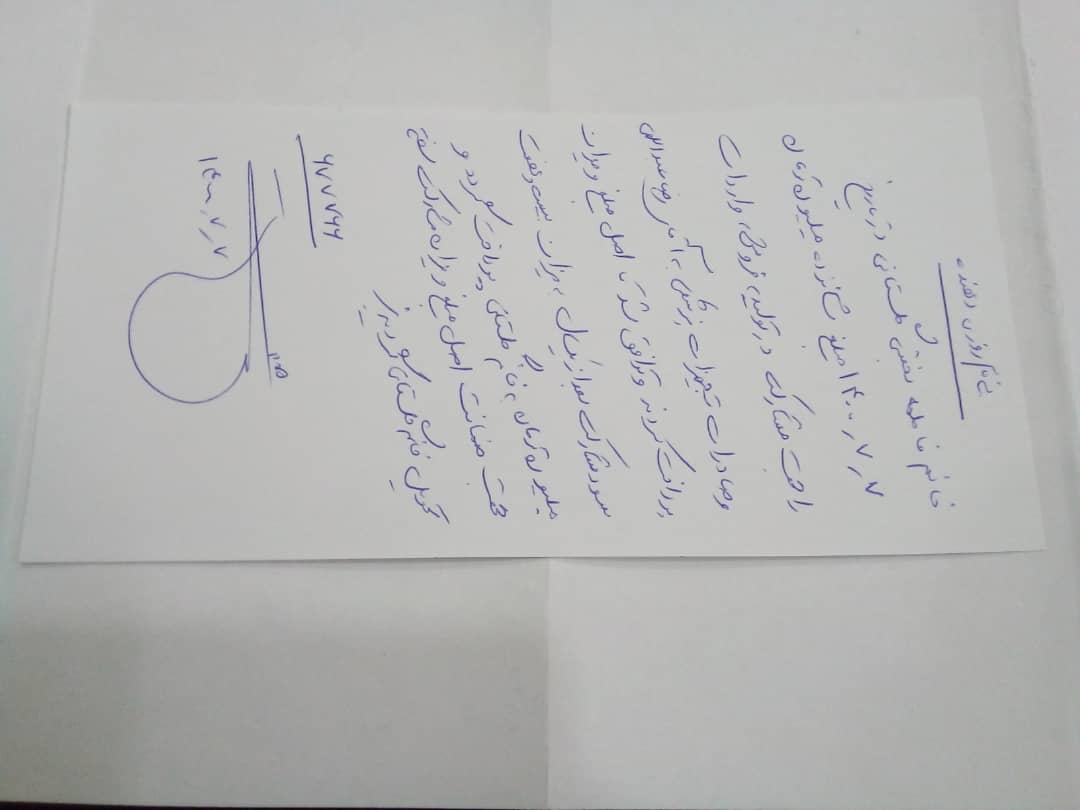 به نام روزی دهنده
خانم فاطمه گلستانی در تاریخ
۱۴۰۰٫۷٫۷ مبلغ شانزده میلیون تومان
را جهت مشارکت در تولید، فروش، واردات
و صادرات تجهیزات پزشکی به آقای رضا عبداللهی
پرداخت کردند و توافق شد تا اصل مبلغ و میزان
سود مشارکت بعد از یکسال به میزان بیست و هفت
میلیون تومان به خانم گلستانی پرداخت گردد و
جهت ضمانت اصل مبلغ و میزان مشارکت سفته
تحویل خانم گلستانی گردید
۶۷۷۷۶۶
۱۴۰۰٫۷٫۷